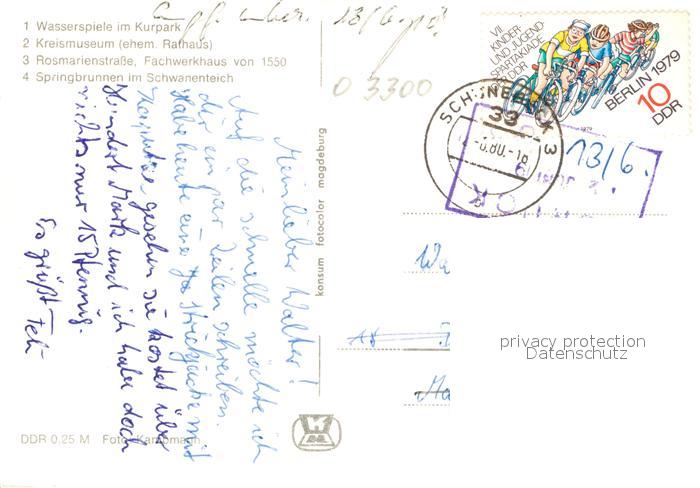 1 Wasserspiele im Kurpark
2 Kreismuseum (ehem. Rathaus)
3 Rosmarienstraße, Fachwerkhaus von 1550
4 Springbrunnen im Schwanenteich
13/6.
O 3300
VII.
KINDER-
UND JUGEND-
SPARTAKIADE
DER DDR
BERLIN 1979
10
DDR
SCHÖNEBECK 3
33
.6.80.-18
1979
13/6.
Mein lieber Walter!
Auf die schnelle möchte ich
dir ein par Zeilen schreiben.
Habe heute eine Strickjacke mit
gesehen sie kostet über
Hundert Mark und ich habe doch
nichts nur 15 Pfennig.
Es grüßt
konsum fotocolor magdeburg
Wa
privacy protection
Datenschutz
DDR 0,25 M Foto: Kampmann